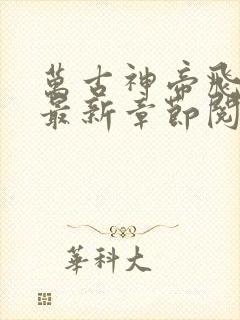 萬古神帝飛
最新章節閱
華科大